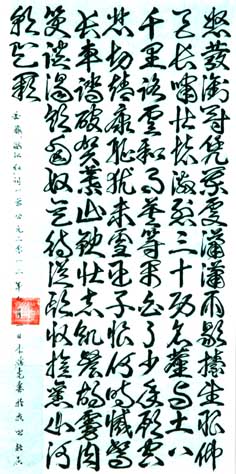 怒發衝冠凭闌處瀟瀟雨歇擡望眼仰
天長嘯壯懷激烈三十功名塵與土八
千里路雲和月莫等閒白了少年頭空
悲切靖康耻猶未雪臣子恨何時憾駕
長車踏破賀蘭山缺壯志飢餐胡虜肉
笑談渴飲匈奴血待從頭收拾舊山河
朝天闕
岳飛滿江紅詞一首公元二零一二年